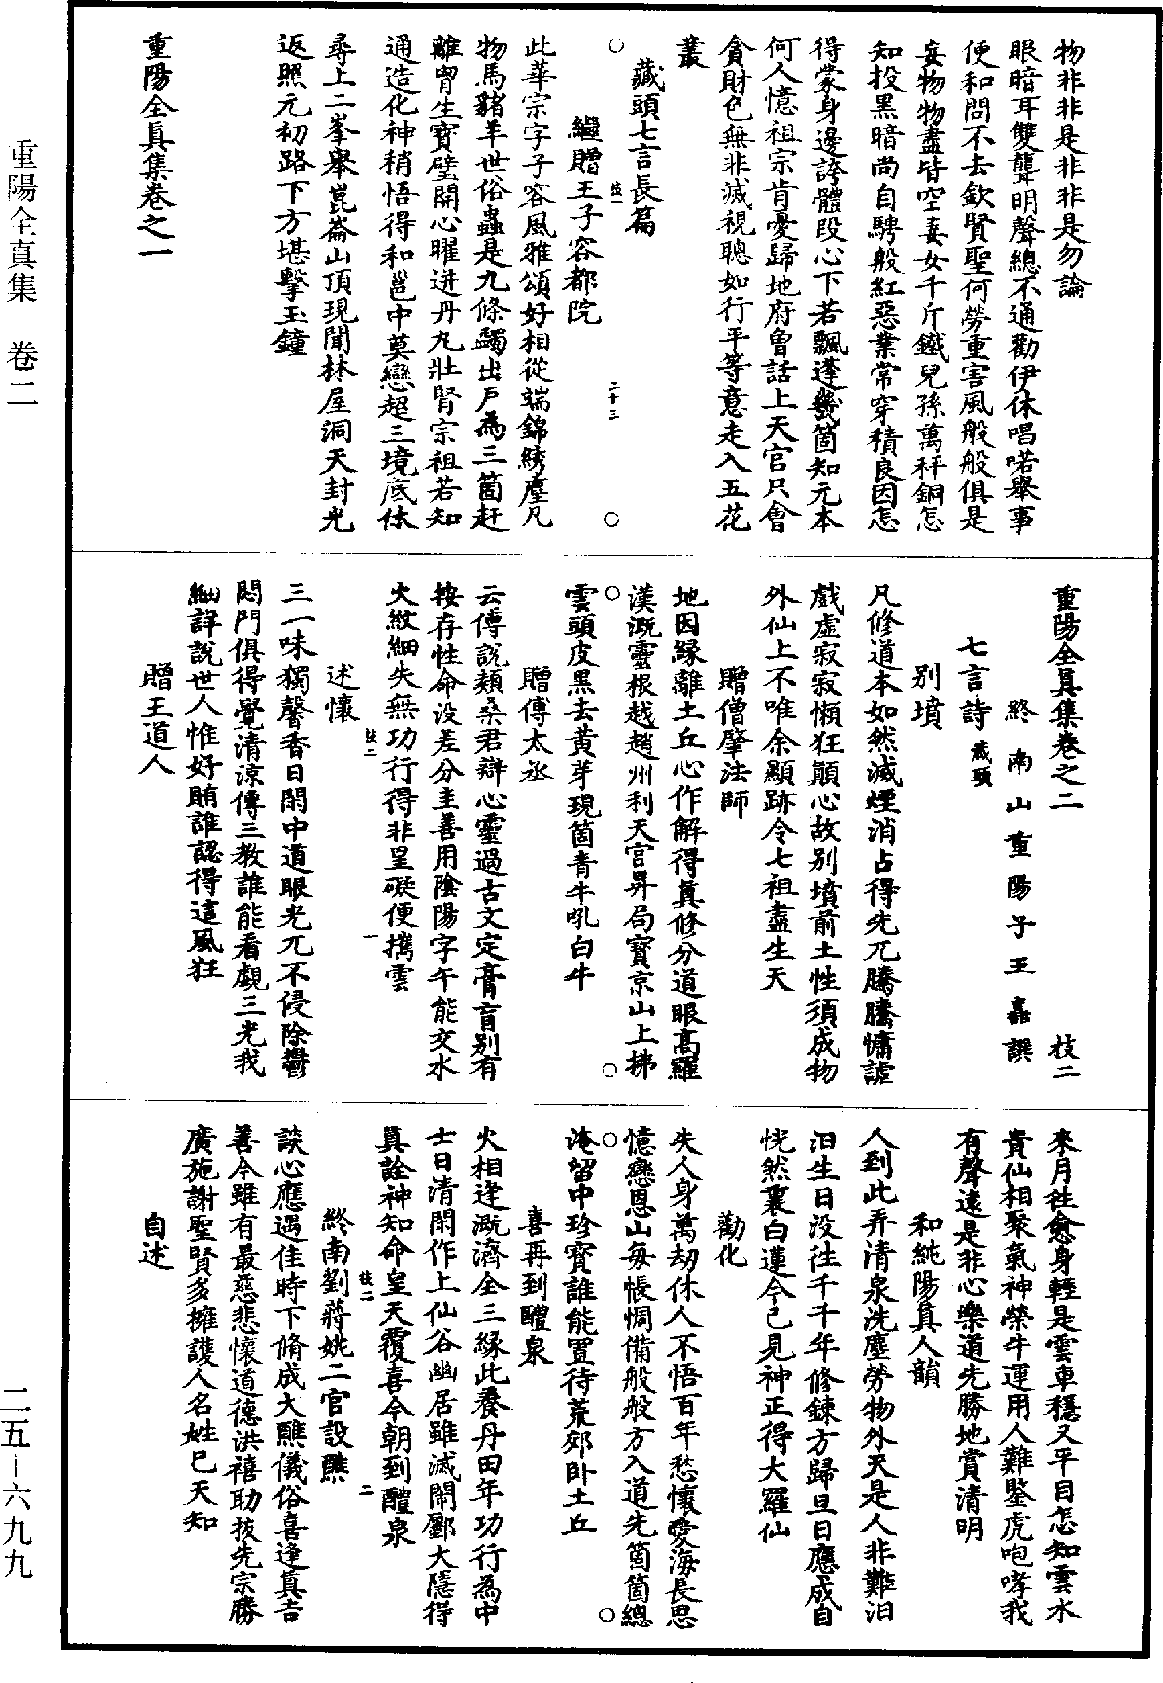 物非非是非非是勿論
眼暗耳雙聾明聲總不通勸伊休唱喏舉事
便和問不去欽賢聖何勞重害風般般俱是
妄物物盡皆空妻女千斤鐵兒孫萬秤銅怎
知投黑暗尚自騁般紅惡業常穿積良因怎
得蒙身邊誇體段心下若飄蓬幾箇知元本
何人憶祖宗肯憂歸地府會話上天官只會
貪財色無非滅視聽如行平等意走入五花
叢
藏頭七言長篇
繼贈王子容都院
此華宗字子容風雅頌好相從端錦綉塵凡
物馬豬羊世俗蟲是九條蠲出戶為三箇赶
離胷生寶璧開心曜迸丹丸壯腎宗祖若知
通造化神稍悟得和邕中莫戀超三境底休
尋上二峯舉崑崙山頂現聞林屋洞天封光
返照元初路下方堪擊玉鐘
重陽全真集卷之一
枝一
二十三
重陽全真集卷之二
枝二
終南山重陽子王嚞譔
七言詩
藏頭
別墳
凡修道本如然滅煙消占得先兀騰騰慵謔
戲虛寂寂懶狂顛心故別墳前土性須成物
外仙上不唯余顯跡令七祖盡生天
贈僧肇法師
地因緣離土丘心作解得真修分道眼高羅
漢溉靈根越趙州利天宮昇局寶京山上拂
雲頭皮黑去黃芽現箇青牛吼白牛
贈傅太丞
云傳說類桑君辯心靈過古文定膏肓別有
按存性命没差分圭善用陰陽字午能交水
火紋細失無功行得非呈礙便擕雲
述懷
三一味獨馨香日閑中道眼光兀不侵除鬱
悶門俱得覺清涼傳三教誰能看覷三光我
細詳說世人惟好賄誰認得這風狂
贈王道人
枝二
一
來月徃愈身輕是雲車穩又平目怎知雲水
貴仙相聚氣神榮牛運用人難鑒虎咆哮我
有聲遠是非心樂道先勝地賞清明
和純陽真人韻
人到此弄清泉洗塵勞物外天是人非難汩
汩生日没徃千千年修鍊方歸旦日應成自
恍然裏白蓮今已見神正得大羅仙
勸化
失人身萬劫休人不悟百年愁懷愛海長思
憶戀恩山每悵惆備般般方入道先箇箇總
淹留中珍寶誰能置待荒郊卧土丘
喜再到醴泉
火相逢溉濟全三緣此養丹田年功行為中
士日清閑作上仙谷幽居雖滅閙酈大隱得
真詮神知命皇天覆喜今朝到醴泉
終南劉蔣姚二官設醮
談心應遇佳時下脩成大醮儀俗喜逢真吉
善今雖有最慈悲懷道德洪禧助拔先宗勝
廣施謝聖賢多擁護人名姓已天知
自述
枝二
二
重陽全真集　卷二
二五—六九九